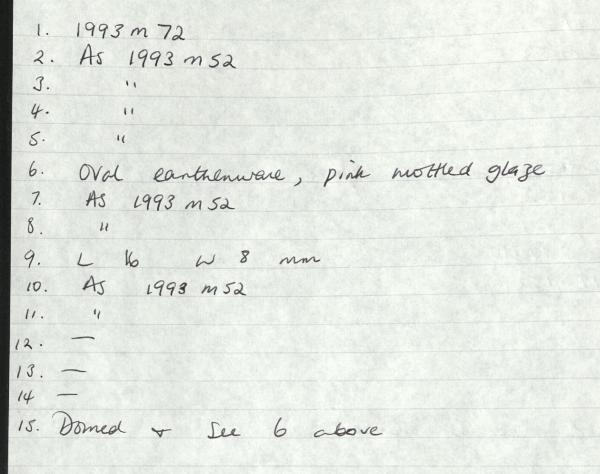 1. 1993 m 72
2. As 1993 m 52
3. "
4. "
5. "
6. Oval earthenware, pink mottled glaze
7. As 1993 m 52
8. "
9. L 16 W 8 mm
10. As 1993 m 52
11. "
12. —
13. —
14 —
15. Domed + see 6 above